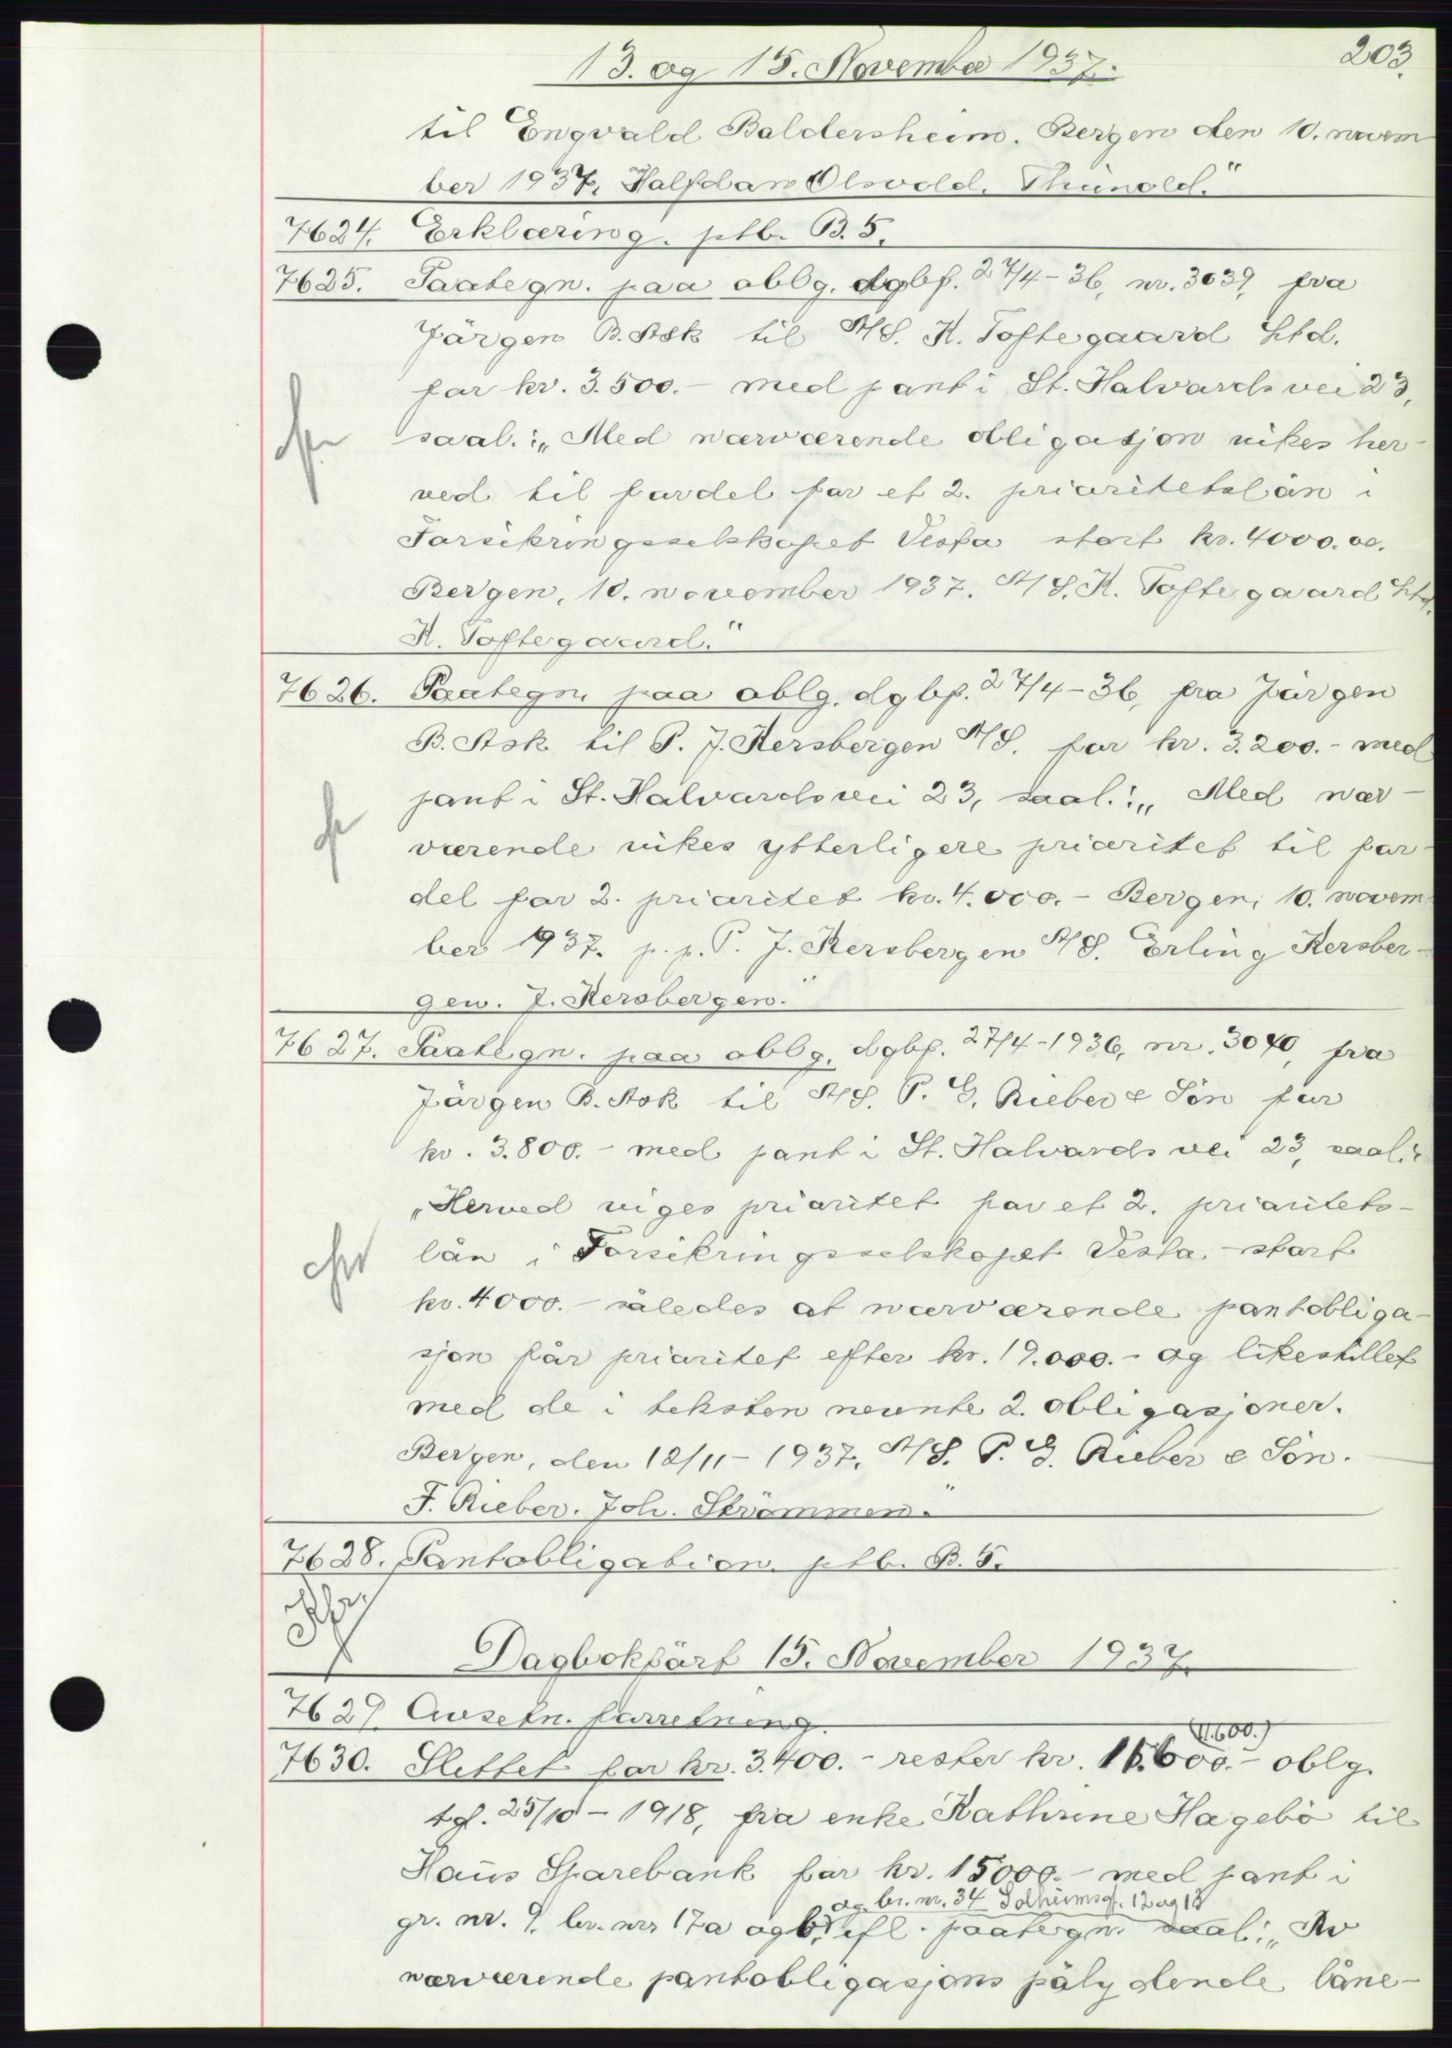 203.
13. og 15. November 1937.
til Engvald Baldersheim. Bergen den 10. novem
ber 1937. Halfdan Olsvold. Thunold."
7624. Erklæring. ptb. B. 5.
7625. Paategn. paa oblg. dgbf. 27/4-36, nr. 3039, fra
Jørgen B. Ask til A/S. K. Toftegaard Ltd.
for kr. 3.500.- med pant i St. Halvards vei 23,
saal.: „Med nærværende obligasjon vikes her-
ved til fordel for et 2. prioritetslån i
Forsikringsselskapet Vesta stort kr. 4000.00.
Bergen, 10. november 1937. A/S. K. Toftegaard Ltd.
K. Toftegaard."
7626. Paategn. paa oblg. dgbf. 27/4-36, fra Jørgen
B. Ask til P. J. Kersbergen A/S. for kr. 3.200.- med
pant i St. Halvards vei 23, saal.: „Med nær-
værende vikes ytterligere prioritet til for-
del for 2. prioritet kr. 4.000.- Bergen, 10. novem
ber 1937. p.p. P. J. Kersbergen A/S. Erling Kersber-
gen. J. Kersbergen."
7627. Paategn. paa oblg. dgbf. 27/4-1936, nr. 3040, fra
Jørgen B. Ask til A/S. P. G. Rieber & Søn for
kr. 3.800.- med pant i St. Halvards vei 23, saal.:
„Herved viges prioritet for et 2. prioritets-
lån i Forsikringsselskapet Vesta.- stort
kr. 4000.- således at nærværende pantobliga-
sjon får prioritet efter kr. 19.000.- og likestillet
med de i teksten nevnte 2. obligasjoner.
Bergen, den 12/11-1937, A/S. P. G. Rieber & Søn.
F. Rieber. Joh. Strømmen."
7628. Pantobligation. ptb. B. 5.
Dagbokført 15. November 1937.
7629. Avsetn. forretning.
(11.600.)
7630. Slettet for kr. 3.400.- rester kr. 11.600.- oblg.
tgl. 25/10-1918, fra enke Kathrine Hagebø til
Haus Sparebank for kr. 15000.- med pant i
og br. nr. 34 Solheimsgt. 12 og 18
gr. nr. 9. br. nr. 17a og b, ifl. paategn. saal.: „Av
nærværende pantobligasjons pålydende låne-